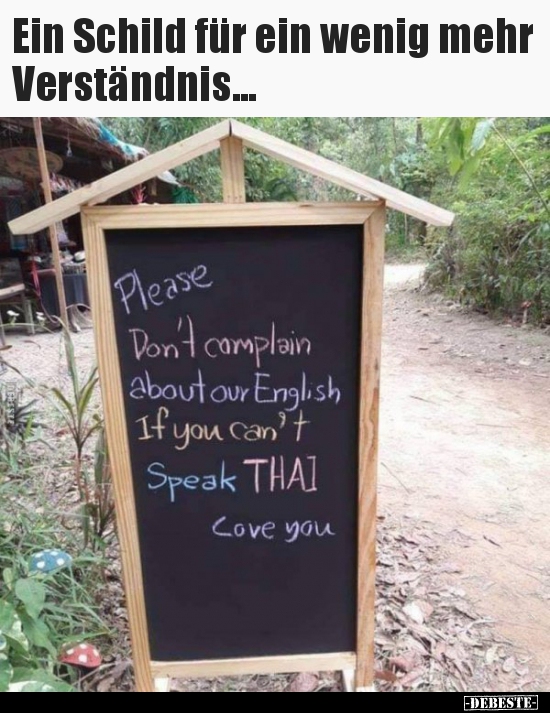 Ein Schild für ein wenig mehr
Verständnis...
Please
Don't complain
about our English
If you can't
Speak THAI
Love you
-DEBESTE-